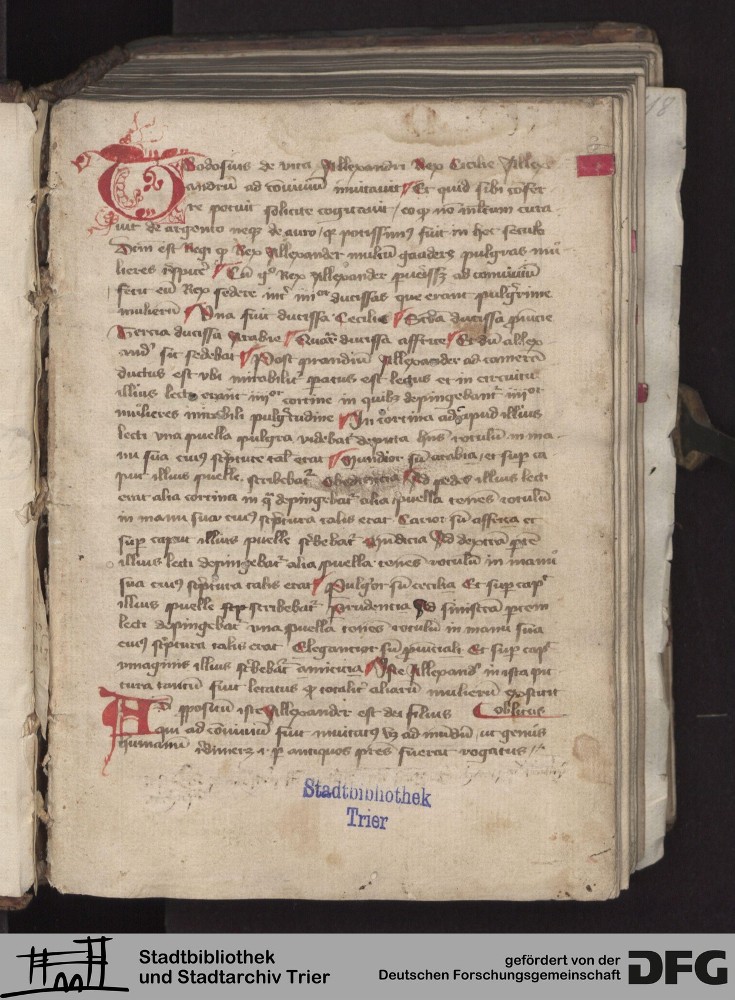 Theodosius de vita Allexandri Rex Cicilie Allex
andrū ad cōiuiuū inuitauit Et quid sibi cōfer
re potuit solicite cogitauit / eo qp nō multum cura
uit de argento neqz de auro / qp potissimū fuit in hoc seculo
Dictū est Regi qp Rex Allexander multū gauderz pulgras mu
lieres īspicere Cū gͦ Rex Allexander puēissz ad conuiuiū
fecit eū Rex sedere int' iiiiᵒʳ ducissas que erant pulg'rime
mulierū Vna fuit ducissa Cecilie Scda ducissa puicie
Tercia ducissa Arabie Quar' ducissa affrice Et dū allex
and' sic sedebat Post prandiū Allexander ad camerā
ductus est vbi mirabilit' paratus est lectus et in circuitu
illius lecti erant iiiiᵒʳ cortine in quibz depingebant' iiiiᵒʳ
mulieres mirabili pulg'tudine In cortina ad caput illius
lecti vna puella pulgra videbat' depicta hn̄s rotulū in ma
nu sua cuiꝰ sc'ptura tal' erat Mundior sū arabia / et sup ca
put illius puelle scribebat' Obediencia Ad pedes illius lecti
erat alia cortina in q̄ depingebat' alia puella tenēs rotulū
in manu sua cuiꝰ sc'ptura talis erat Carior sū affrica et
sup caput illius puelle sc'bebat' Iudicia Ad dextrā ptē
illius lecti depingebat' alia puella tenēs rotulū in manu
sua cuiꝰ sc'ptura talis erat Pulg'or sū cecilia Et sup cap'
illius puelle scribebat' Prudencia Ad sinistrā ptem
lecti depingebat' vna puella tenēs rotulū in manu sua
cuiꝰ sc'ptura talis erat Elegancior sū puiciali Et sup cap'
ymaginis illius sc'bebat' amicicia Iste Allexand' in ista pic
tura tantū fuit letatus qp totalit' aliarū mulierū extitit
oblitus
Ad ppositū iste Allexander est dei filius
qui ad cōuiuiū fuit inuitatꝰ vz ad mūdū / ut genus
humanū redimerz et p antiquos pres fuerat rogatus
Stadtbibliothek
Trier
Stadtbibliothek
und Stadtarchiv Trier
gefördert von der
Deutschen Forschungsgemeinschaft
DFG